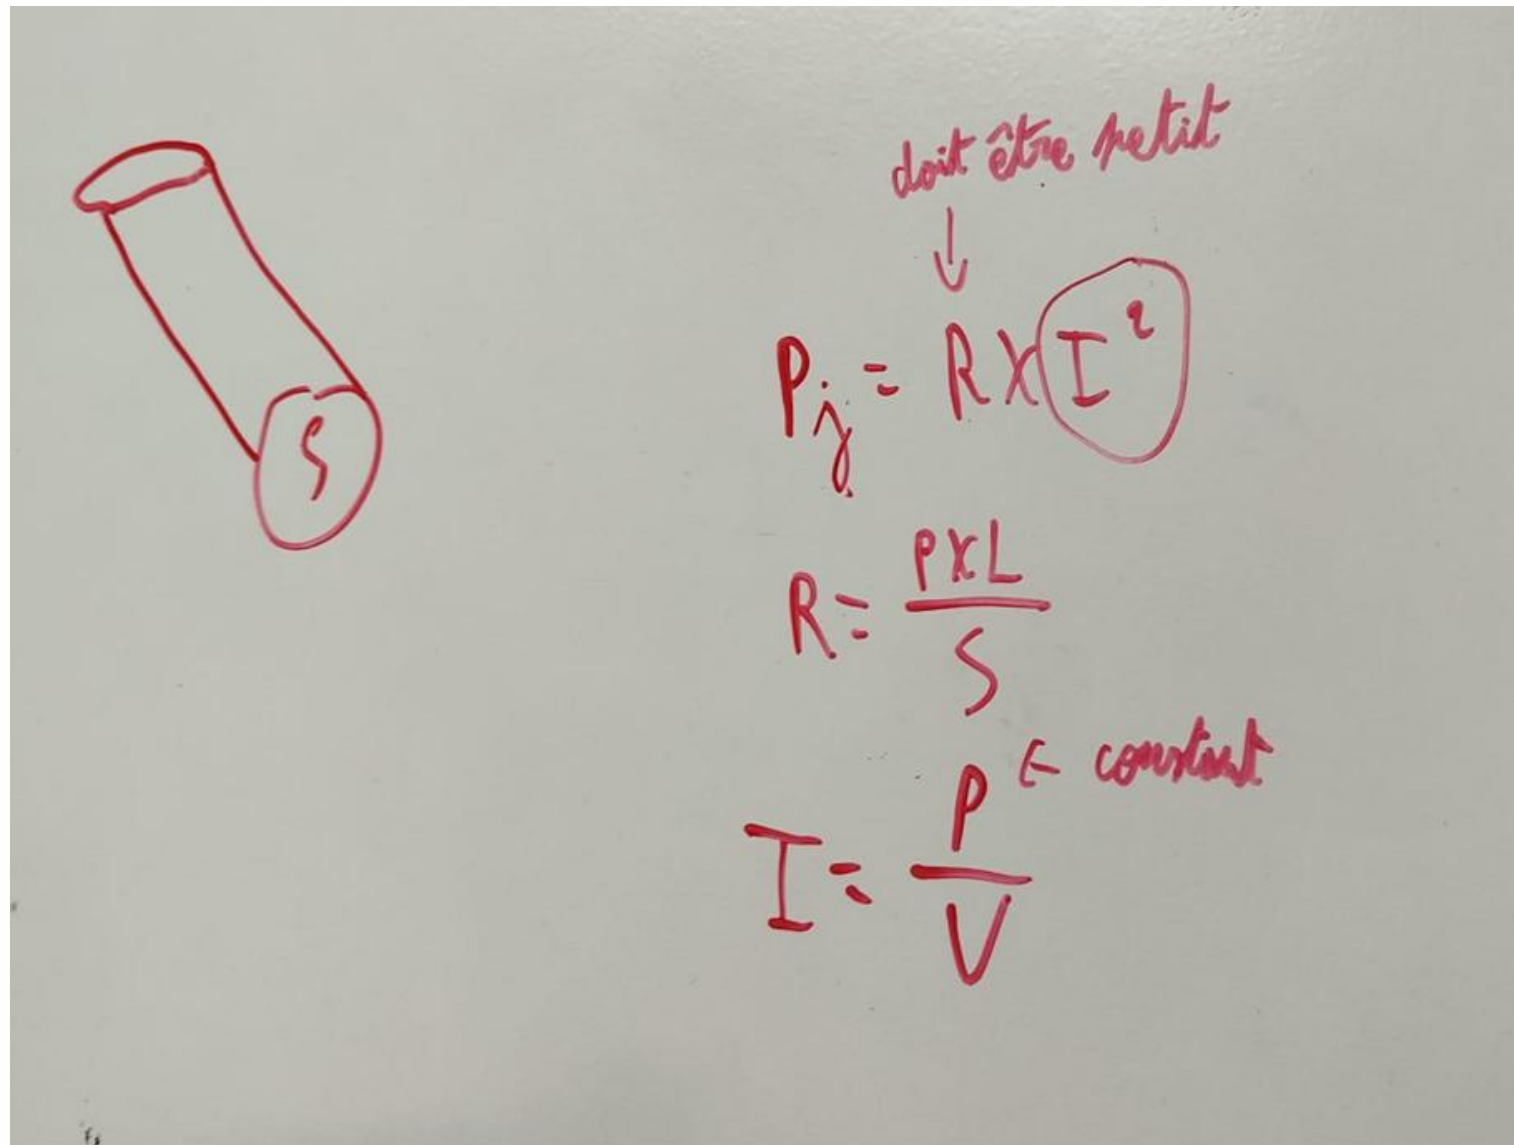 doit être petit
↓
Pj = R X I²
S
R = ρ X L / S
I = P / V ← constant